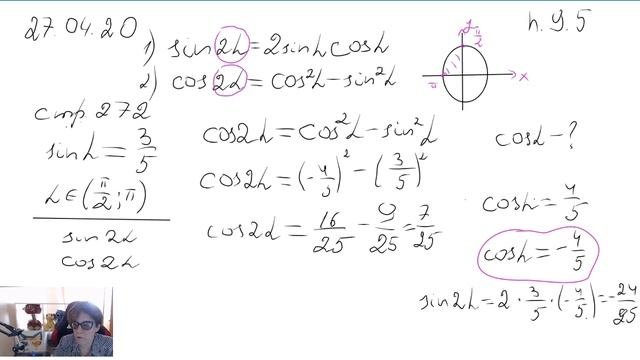 27.04.20
п.9.5
1) sin2α=2sinαcosα
2) cos2α=cos²α-sin²α
стр. 272
sinα=3/5
α∈(π/2;π)
sin2α
cos2α
cos2α=cos²α-sin²α
cos2α=(-4/5)²-(3/5)²
cos2α=16/25-9/25=7/25
y
π/2
π
x
cosα-?
cosα=4/5
cosα=-4/5
sin2α=2·3/5·(-4/5)=-24/25